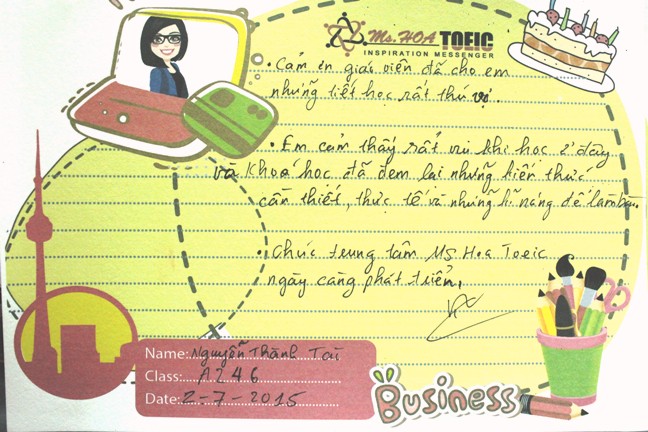 Ms. HOA TOEIC
INSPIRATION MESSENGER
• Cảm ơn giáo viên đã cho em
những tiết học rất thú vị.
• Em cảm thấy rất vui khi học ở đây
và khoá học đã đem lại những kiến thức
cần thiết, thực tế và những kĩ năng để làm bài.
• Chúc trung tâm Ms Hoa Toeic
ngày càng phát triển.
Name: Nguyễn Thành Tài
Class: A246
Date: 2-7-2015
Business